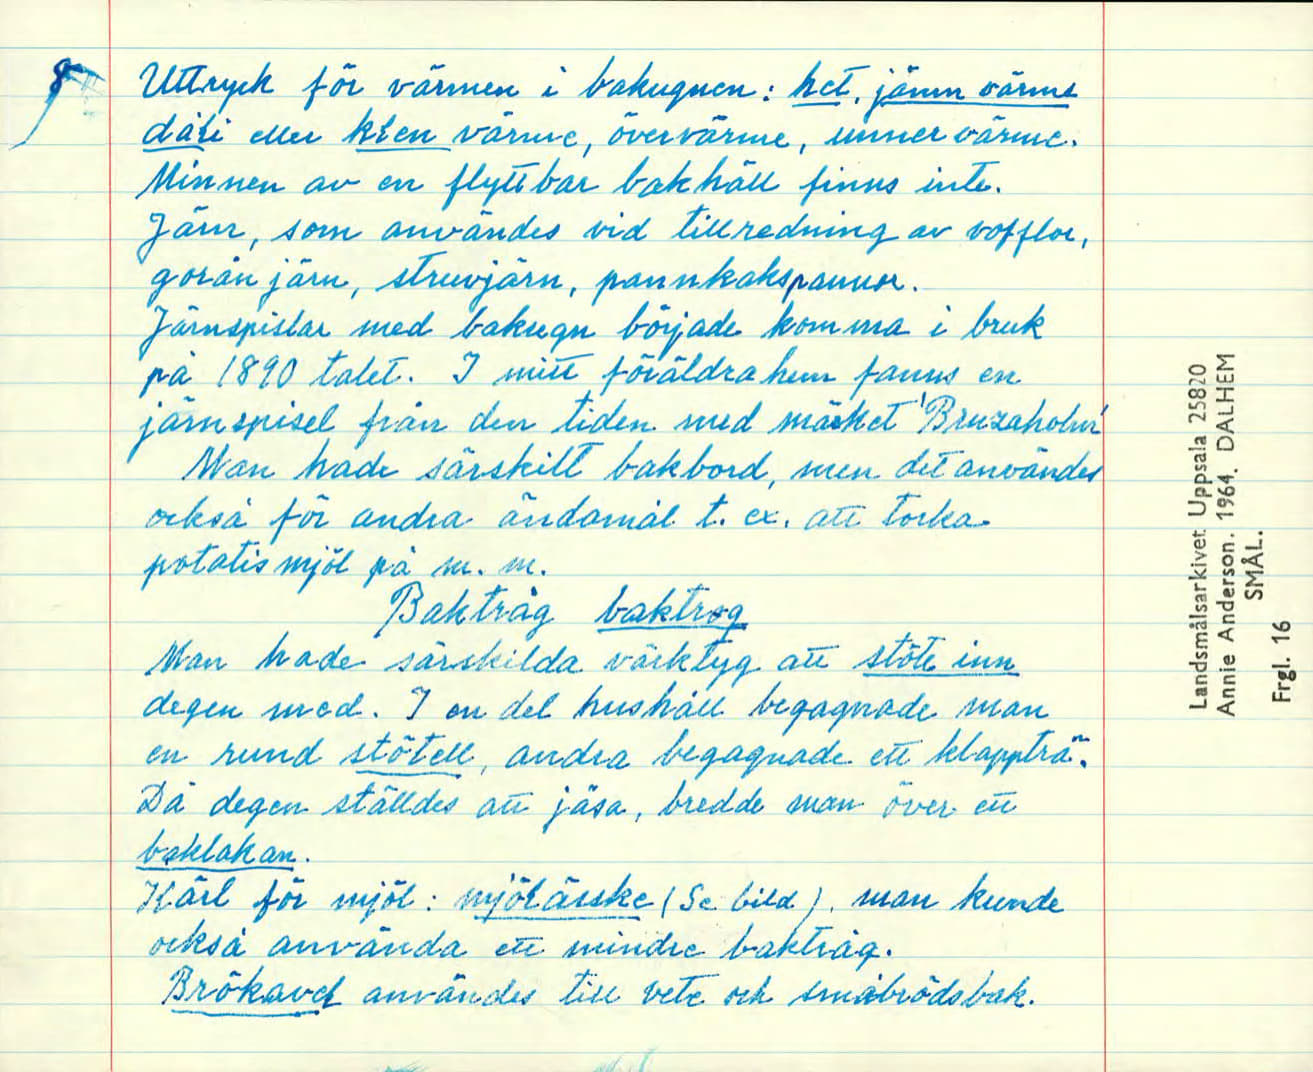 8
Uttryck för värmen i bakugnen: het, jämn värme
dåli eller klen värme, övervärme, unnervärme.
Minnen av en flyttbar bakhäll finns inte.
Järn, som användes vid tillredning av vofflor,
gorån järn, struvjärn, pannkakspannor.
Järnspislar med bakugn började komma i bruk
på 1890 talet. I mitt föräldrahem fanns en
järnspisel från den tiden med märket 'Bruzaholm'
Man hade särskilt bakbord, men det användes
också för andra ändamål t. ex. att torka
potatismjöl på m. m.
Baktråg baktrog
Man hade särskilda värktyg att stöte inn
degen med. I en del hushåll begagnade man
en rund stötell, andra begagnade ett klappträ".
Då degen ställdes att jäsa, bredde man över ett
baklakan.
Kärl för mjöl: mjölärske (Se bild), man kunde
också använda ett mindre baktråg.
Brökavel användes till vete och småbrödsbak.
Landsmålsarkivet Uppsala 25820
Annie Anderson. 1964. DALHEM
SMÅL.
Frgl. 16